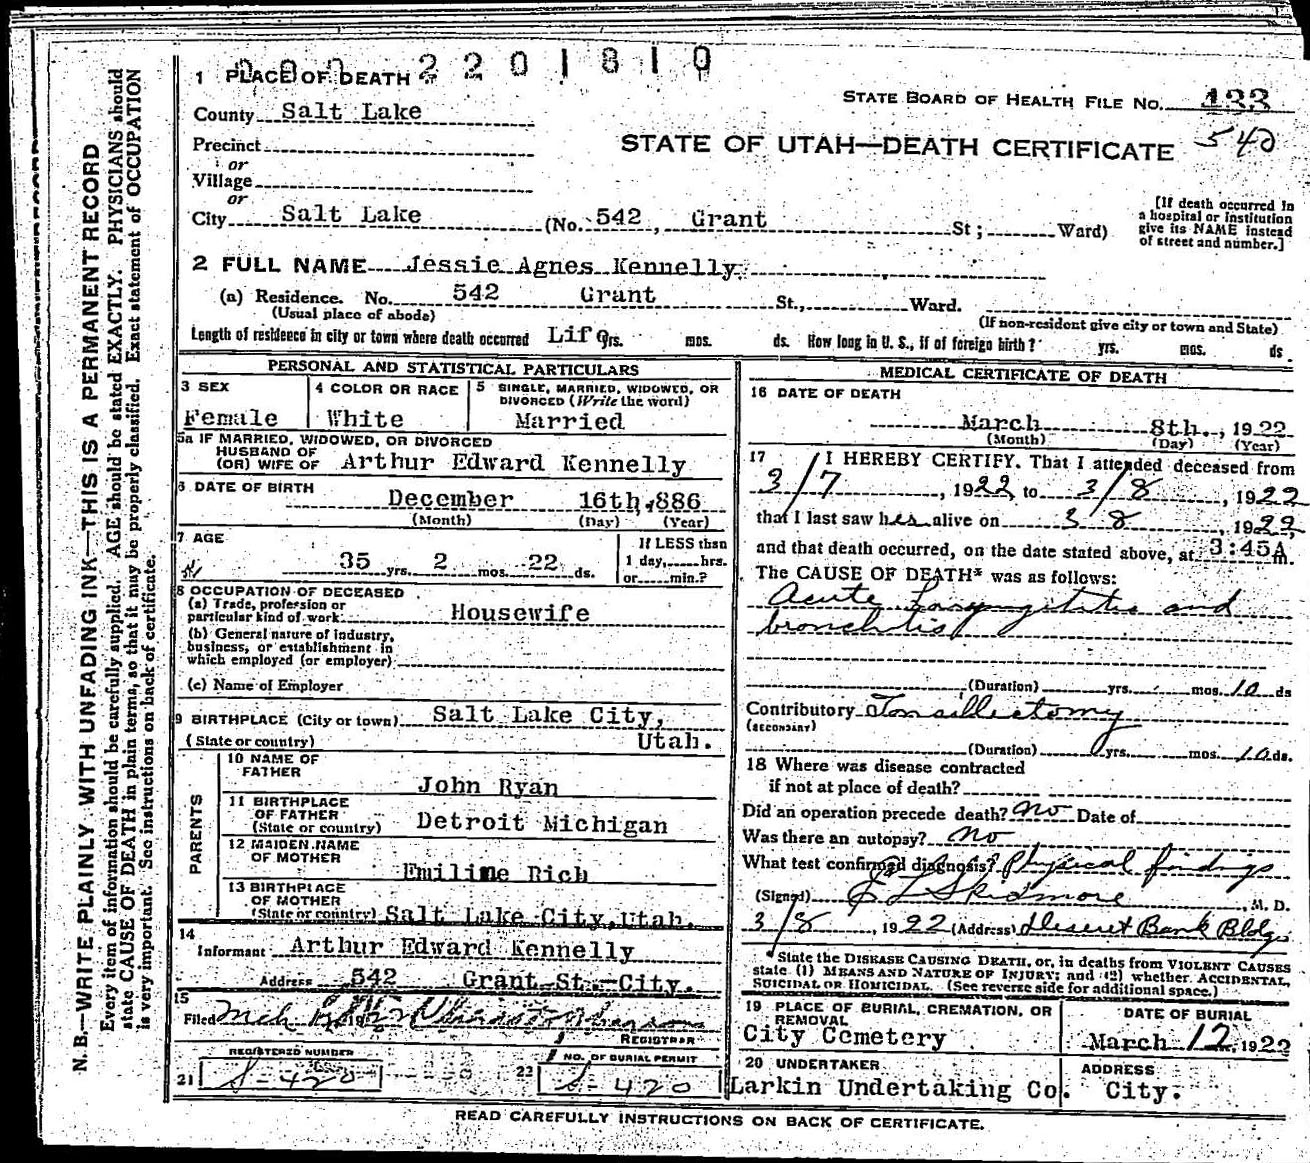 2201810
1 PLACE OF DEATH
STATE BOARD OF HEALTH FILE No. 433
County Salt Lake
STATE OF UTAH—DEATH CERTIFICATE 540
Precinct
or
Village
or
City Salt Lake (No. 542, Grant St; Ward)
[If death occurred in
a hospital or institution
give its NAME instead
of street and number.]
2 FULL NAME Jessie Agnes Kennelly.
(a) Residence. No. 542 Grant St., Ward.
(Usual place of abode) (If non-resident give city or town and State)
Length of residence in city or town where death occurred Life yrs. mos. ds. How long in U. S., if of foreign birth? yrs. mos. ds.
PERSONAL AND STATISTICAL PARTICULARS
3 SEX
Female
4 COLOR OR RACE
White
5 SINGLE, MARRIED, WIDOWED, OR
DIVORCED (Write the word)
Married
5a IF MARRIED, WIDOWED, OR DIVORCED
HUSBAND OF
(OR) WIFE OF Arthur Edward Kennelly
6 DATE OF BIRTH
December 16th, 886
(Month) (Day) (Year)
7 AGE
35 yrs. 2 mos. 22 ds.
If LESS than
1 day, hrs.
or min.?
8 OCCUPATION OF DECEASED
(a) Trade, profession or
particular kind of work Housewife
(b) General nature of industry,
business, or establishment in
which employed (or employer)
(c) Name of Employer
9 BIRTHPLACE (City or town) Salt Lake City,
(State or country) Utah.
PARENTS
10 NAME OF
FATHER John Ryan
11 BIRTHPLACE
OF FATHER
(State or country) Detroit Michigan
12 MAIDEN NAME
OF MOTHER Emiline Rich
13 BIRTHPLACE
OF MOTHER
(State or country) Salt Lake City, Utah.
14
Informant Arthur Edward Kennelly
Address 542 Grant St. City.
15
Filed Mch
REGISTRAR
REGISTERED NUMBER
21 S-420
NO. OF BURIAL PERMIT
22 S-420
MEDICAL CERTIFICATE OF DEATH
16 DATE OF DEATH
March 8th, 1922
(Month) (Day) (Year)
17 I HEREBY CERTIFY. That I attended deceased from
3/7, 1922 to 3/8, 1922
that I last saw her alive on 3 8, 1922,
and that death occurred, on the date stated above, at 3:45A m.
The CAUSE OF DEATH* was as follows:
Acute Laryngititis and
bronchitis
(Duration) yrs. mos. 10 ds
Contributory Tonsillectomy
(SECONDARY)
(Duration) yrs. mos. 10 ds.
18 Where was disease contracted
if not at place of death?
Did an operation precede death? No Date of
Was there an autopsy? No
What test confirmed diagnosis? Physical findings
(Signed) Skidmore, M. D.
3/8, 1922 (Address) Deseret Bank Bldg
*State the DISEASE CAUSING DEATH, or, in deaths from VIOLENT CAUSES
state (1) MEANS AND NATURE OF INJURY; and (2) whether ACCIDENTAL,
SUICIDAL OR HOMICIDAL. (See reverse side for additional space.)
19 PLACE OF BURIAL, CREMATION, OR
REMOVAL
City Cemetery
DATE OF BURIAL
March 12, 1922
20 UNDERTAKER
Larkin Undertaking Co.
ADDRESS
City.
READ CAREFULLY INSTRUCTIONS ON BACK OF CERTIFICATE.
N. B.—WRITE PLAINLY WITH UNFADING INK—THIS IS A PERMANENT RECORD
Every item of information should be carefully supplied. AGE should be stated EXACTLY. PHYSICIANS should
state CAUSE OF DEATH in plain terms, so that it may be properly classified. Exact statement of OCCUPATION
is very important. See instructions on back of certificate.